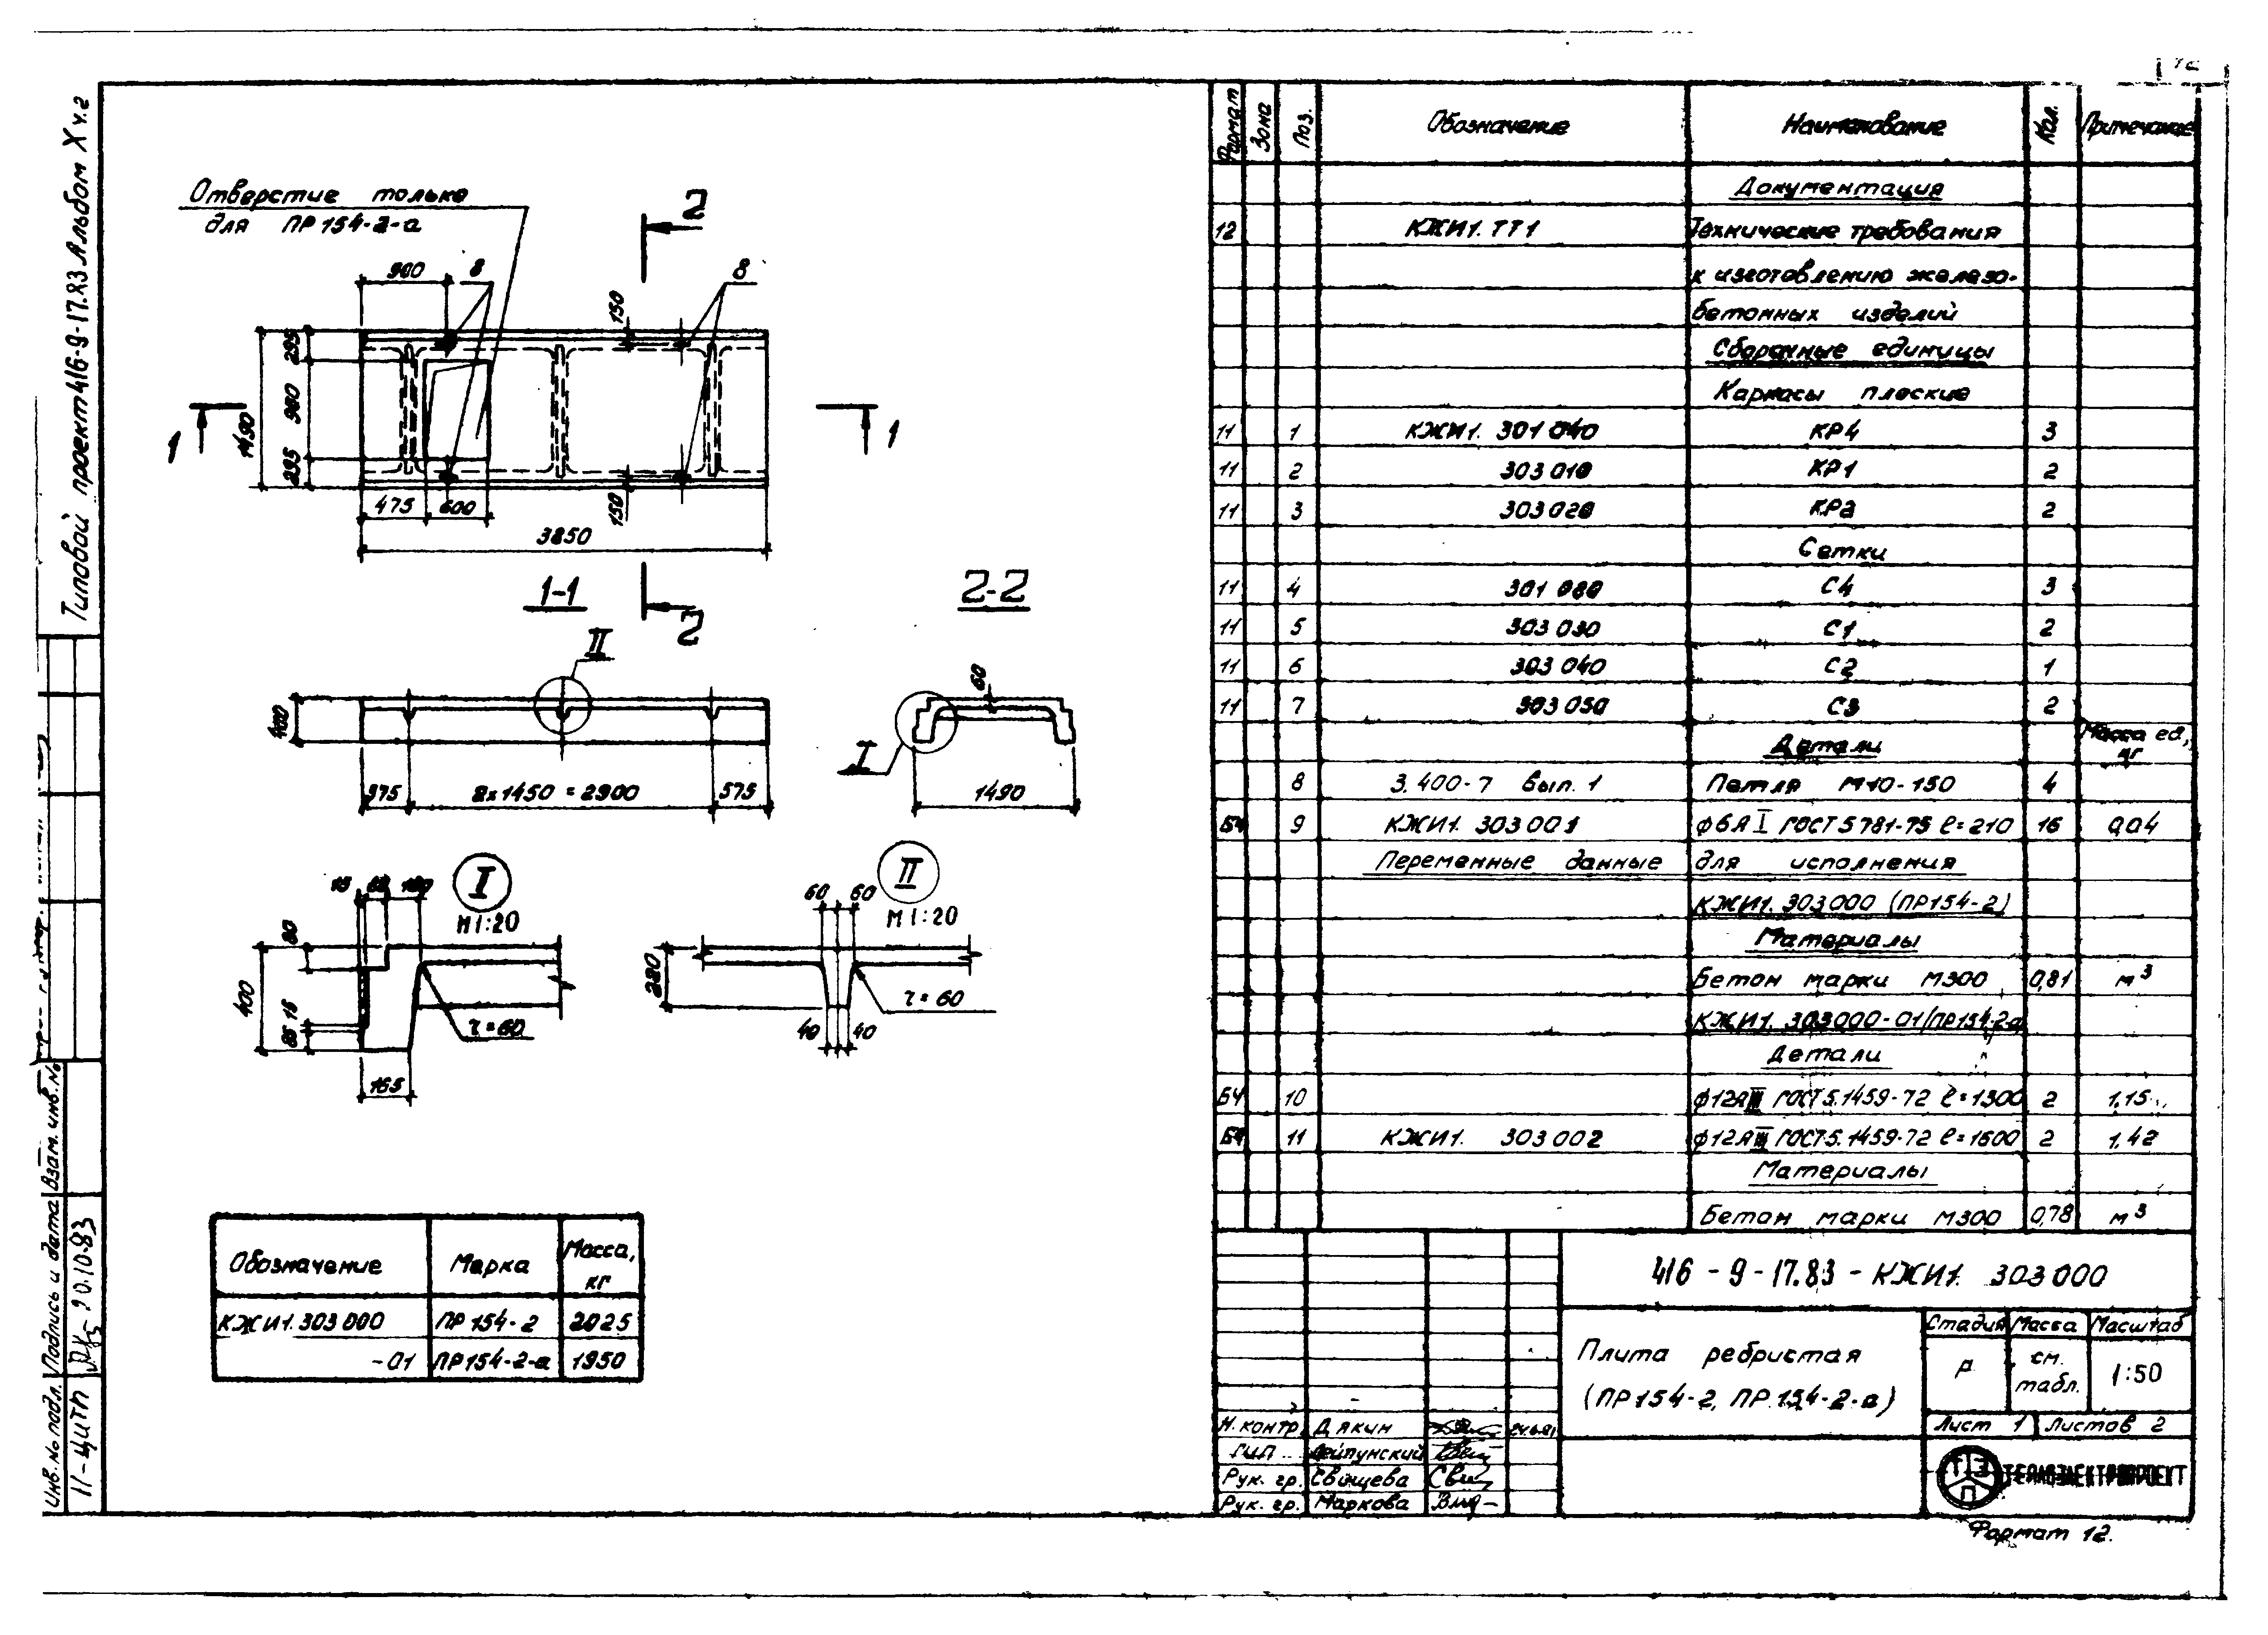 Типовой проект 416-9-17.83 Альбом X ч.2
Отверстие только
для ПР154-2-а
2
900
8
8
150
295
900
295
1490
1
1
475
600
150
3850
1-1
2
2-2
II
400
575
2x1450 = 2900
575
60
I
1490
I
М1:20
15
180
80
400
15
85
r=60
165
II
М1:20
60
60
280
r=60
40
40
Обозначение
Марка
Масса, кг
КЖИ1.303000
ПР154-2
2025
-01
ПР154-2-а
1950
Формат
Зона
Поз.
Обозначение
Наименование
Кол.
Примечание
Документация
12 КЖИ1.ТТ1 Технические требования
к изготовлению железо-
бетонных изделий
Сборочные единицы
Каркасы плоские
11 1 КЖИ1. 301 040 КР4 3
11 2 303 010 КР1 2
11 3 303 020 КР2 2
Сетки
11 4 301 080 С4 3
11 5 303 030 С1 2
11 6 303 040 С2 1
11 7 303 050 С3 2
Детали Масса ед., кг
8 3.400-7 Вып. 1 Петля М10-150 4
БЧ 9 КЖИ1. 303 001 ф6АI ГОСТ 5781-75 ℓ=210 16 0,04
Переменные данные для исполнения
КЖИ1. 303000 (ПР154-2)
Материалы
Бетон марки М300 0,81 м³
КЖИ1. 303000-01/ПР154-2а
Детали
БЧ 10 ф12АIII ГОСТ 5.1459-72 ℓ=1300 2 1,15
БЧ 11 КЖИ1. 303 002 ф12АIII ГОСТ 5.1459-72 ℓ=1600 2 1,42
Материалы
Бетон марки М300 0,78 м³
416-9-17.83-КЖИ1. 303000
Плита ребристая
(ПР154-2, ПР154-2-а)
Стадия
Масса
Масштаб
Р
см. табл.
1:50
Лист 1
Листов 2
Н.контр. Дякин
ГИП Лейпунский
Рук. гр. Свищева
Рук. гр. Маркова
ТЭП
ТЕПЛОЭЛЕКТРОПРОЕКТ
Формат 12.
Взам. инв. №
Подпись и дата
20.10.83
Инв. № подл.
11-ЦИТП